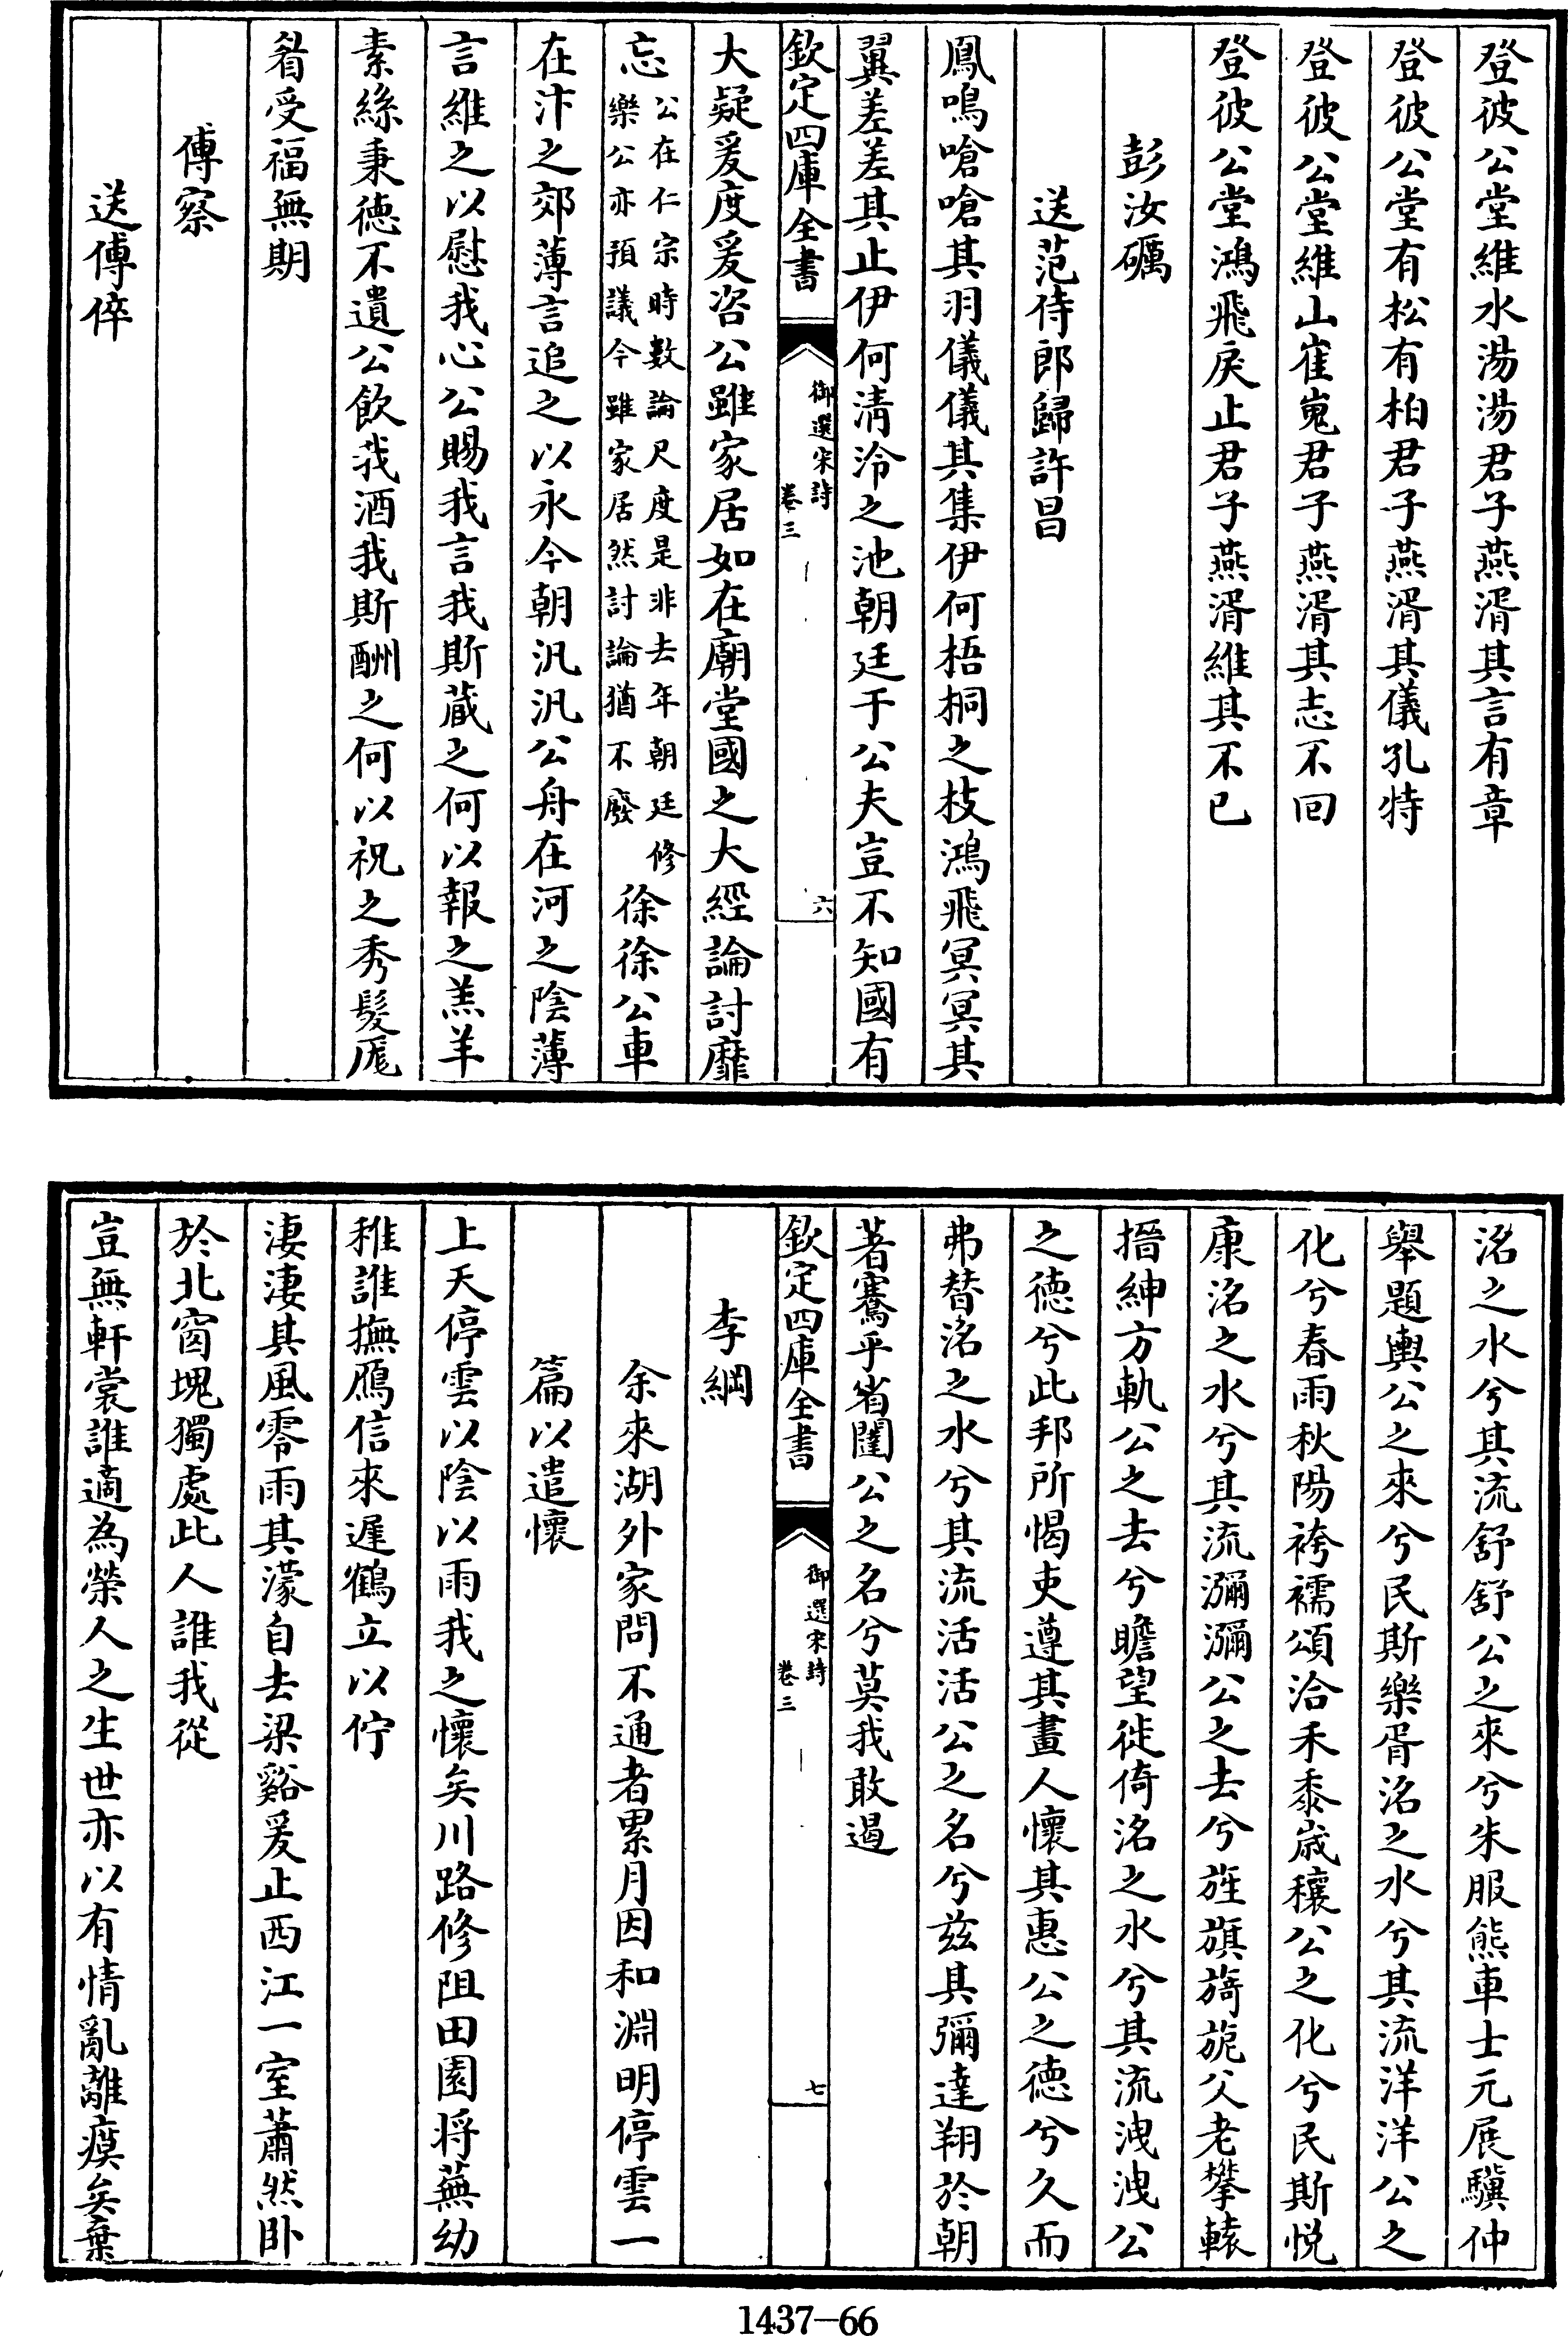 登彼公堂維水湯湯君子燕湑其言有章
登彼公堂有松有柏君子燕湑其儀孔特
登彼公堂維山崔嵬君子燕湑其志不回
登彼公堂鴻飛戾止君子燕湑維其不已
彭汝礪
送范侍郎歸許昌
鳳鳴嗆嗆其羽儀儀其集伊何梧桐之枝鴻飛冥冥其
翼差差其止伊何清泠之池朝廷于公夫豈不知國有
欽定四庫全書
御選宋詩
卷三
六
大疑爰度爰咨公雖家居如在廟堂國之大經論討靡
忘公在仁宗時數論尺度是非去年朝廷修
樂公亦預議今雖家居然討論猶不廢徐徐公車
在汴之郊薄言追之以永今朝汎汎公舟在河之陰薄
言維之以慰我心公賜我言我斯蔵之何以報之羔羊
素絲秉德不遺公飲我酒我斯酬之何以祝之秀髮厖
眉受福無期
傅察
送傅倅
洺之水兮其流舒舒公之來兮朱服熊車士元展驥仲
舉題輿公之來兮民斯樂胥洺之水兮其流洋洋公之
化兮春雨秋陽袴襦頌洽禾黍歲穰公之化兮民斯悅
康洺之水兮其流瀰瀰公之去兮旌旗旖旎父老攀轅
搢紳方軌公之去兮瞻望徙倚洺之水兮其流洩洩公
之德兮此邦所愒吏遵其畫人懷其惠公之德兮久而
弗替洺之水兮其流活活公之名兮兹其彌達翔於朝
著騫乎省闥公之名兮莫我敢遏
欽定四庫全書
御選宋詩
卷三
七
李綱
余來湖外家問不通者累月因和淵明停雲一
篇以遣懷
上天停雲以陰以雨我之懷矣川路修阻田園将蕪幼
稚誰撫鴈信來遲鶴立以佇
淒淒其風零雨其濛自去梁谿爰止西江一室蕭然卧
於北窗塊獨處此人誰我從
豈無軒裳誰適為榮人之生世亦以有情亂離瘼矣棄
1437—66